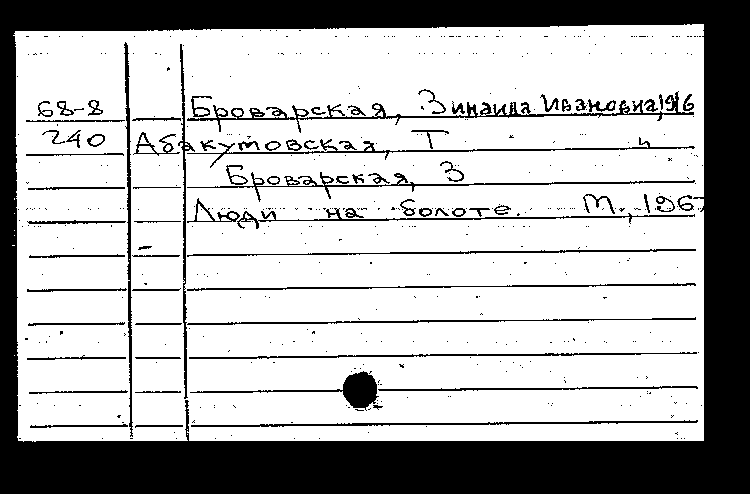 68-8 Броварская, Зинаида Ивановна, 1916
240 Абакумовская, Т и
Броварская, З
Люди на болоте. М., 1967